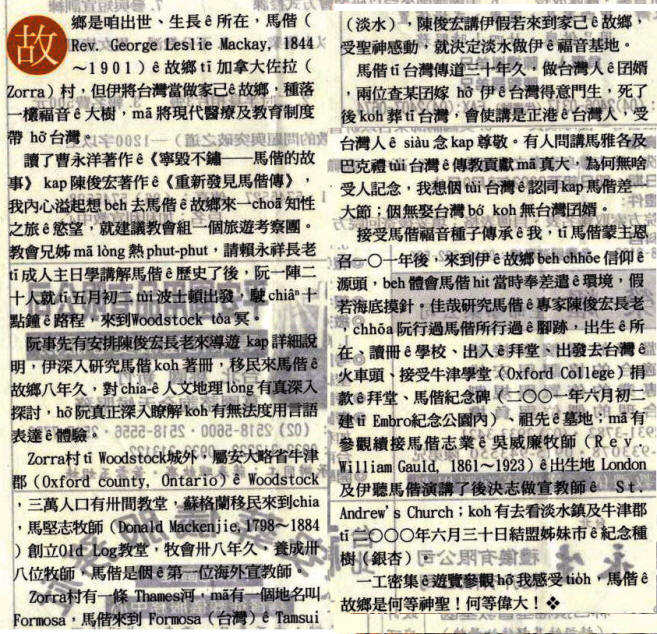 故鄉是咱出世、生長ê所在,馬偕(
Rev. George Leslie Mackay, 1844
~1901)ê故鄉tī加拿大佐拉(
Zorra)村,但伊將台灣當做家己ê故鄉,種落
一欉福音ê大樹,mā將現代醫療及教育制度
帶 hō͘台灣。
讀了曹永洋著作ê《寧毀不鏽——馬偕的故
事》 kap陳俊宏著作ê《重新發見馬偕傳》,
我內心溢起想 beh 去馬偕ê故鄉來一choā知性
之旅ê慾望,就建議教會組一個旅遊考察團。
教會兄姊 mā lòng 熱phut-phut,請賴永祥長老
tī成人主日學講解馬偕ê歷史了後,阮一陣二
十人就tī五月初二 tùi 波士頓出發,駛chiâⁿ十
點鐘ê路程,來到Woodstock tòa 冥。
阮事先有安排陳俊宏長老來導遊 kap 詳細說
明,伊深入研究馬偕 koh 著冊,移民來馬偕ê
故鄉八年久,對 chia-ê 人文地理 lòng 有真深入
探討,hō͘阮真正深入瞭解 koh 有無法度用言語
表達ê體驗。
Zorra村tī Woodstock城外,屬安大略省牛津
郡(Oxford county, Ontario)ê Woodstock
,三萬人口有卅間教堂,蘇格蘭移民來到chia
,馬堅志牧師(Donald Mackenjie, 1798~1884
)創立Old Log教堂,牧會卅八年久,養成卅
八位牧師,馬偕是個ê第一位海外宣教師。
Zorra村有一條 Thames河,mā有一個地名叫
Formosa,馬偕來到 Formosa(台灣)ê Tamsui
(淡水),陳俊宏講伊假若來到家己ê故鄉,
受聖神感動,就決定淡水做伊ê福音基地。
馬偕tī台灣傳道三十年久,做台灣人ê囝婿
,兩位查某囝嫁 hō͘ 伊ê台灣得意門生,死了
後 koh 葬tī台灣,會使講是正港ê台灣人,受
台灣人ê siàu 念 kap 尊敬。有人問講馬雅各及
巴克禮 tùi 台灣ê傳教貢獻 mā 真大,為何無啥
受人記念,我想個 tùi 台灣ê認同 kap 馬偕差一
大節;個無娶台灣bó͘ koh 無台灣囝婿。
接受馬偕福音種子傳承ê我,tī馬偕蒙主恩
召一○一年後,來到伊ê故鄉 beh chhōe 信仰ê
源頭,beh 體會馬偕 hit 當時奉差遣ê環境,假
若海底摸針。佳哉研究馬偕ê專家陳俊宏長老
,chhōa 阮行過馬偕所行過ê腳跡,出生ê所
在、讀冊ê學校、出入ê拜堂、出發去台灣ê
火車頭、接受牛津學堂(Oxford College)捐
款ê拜堂、馬偕紀念碑(二○○一年六月初二
建tī Embro紀念公園內)、祖先ê墓地;mā 有
參觀續接馬偕志業ê吳威廉牧師(Rev.
William Gauld, 1861~1923)ê出生地 London
及伊聽馬偕演講了後決志做宣教師ê St.
Andrew's Church;koh 有去看淡水鎮及牛津郡
tī二○○○年六月三十日結盟姊妹市ê紀念種
樹(銀杏)。
一工密集ê遊覽參觀hō͘我感受tio̍h,馬偕ê
故鄉是何等神聖!何等偉大!❖